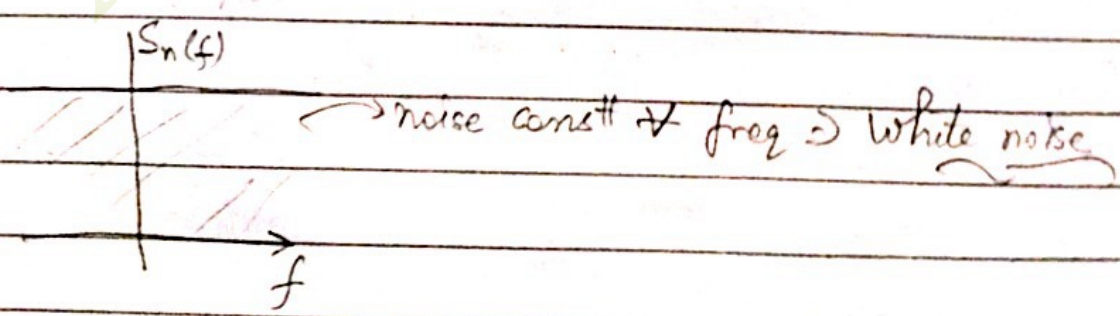 Sn(f)
noise constt ∀ freq ⇒ White noise
f